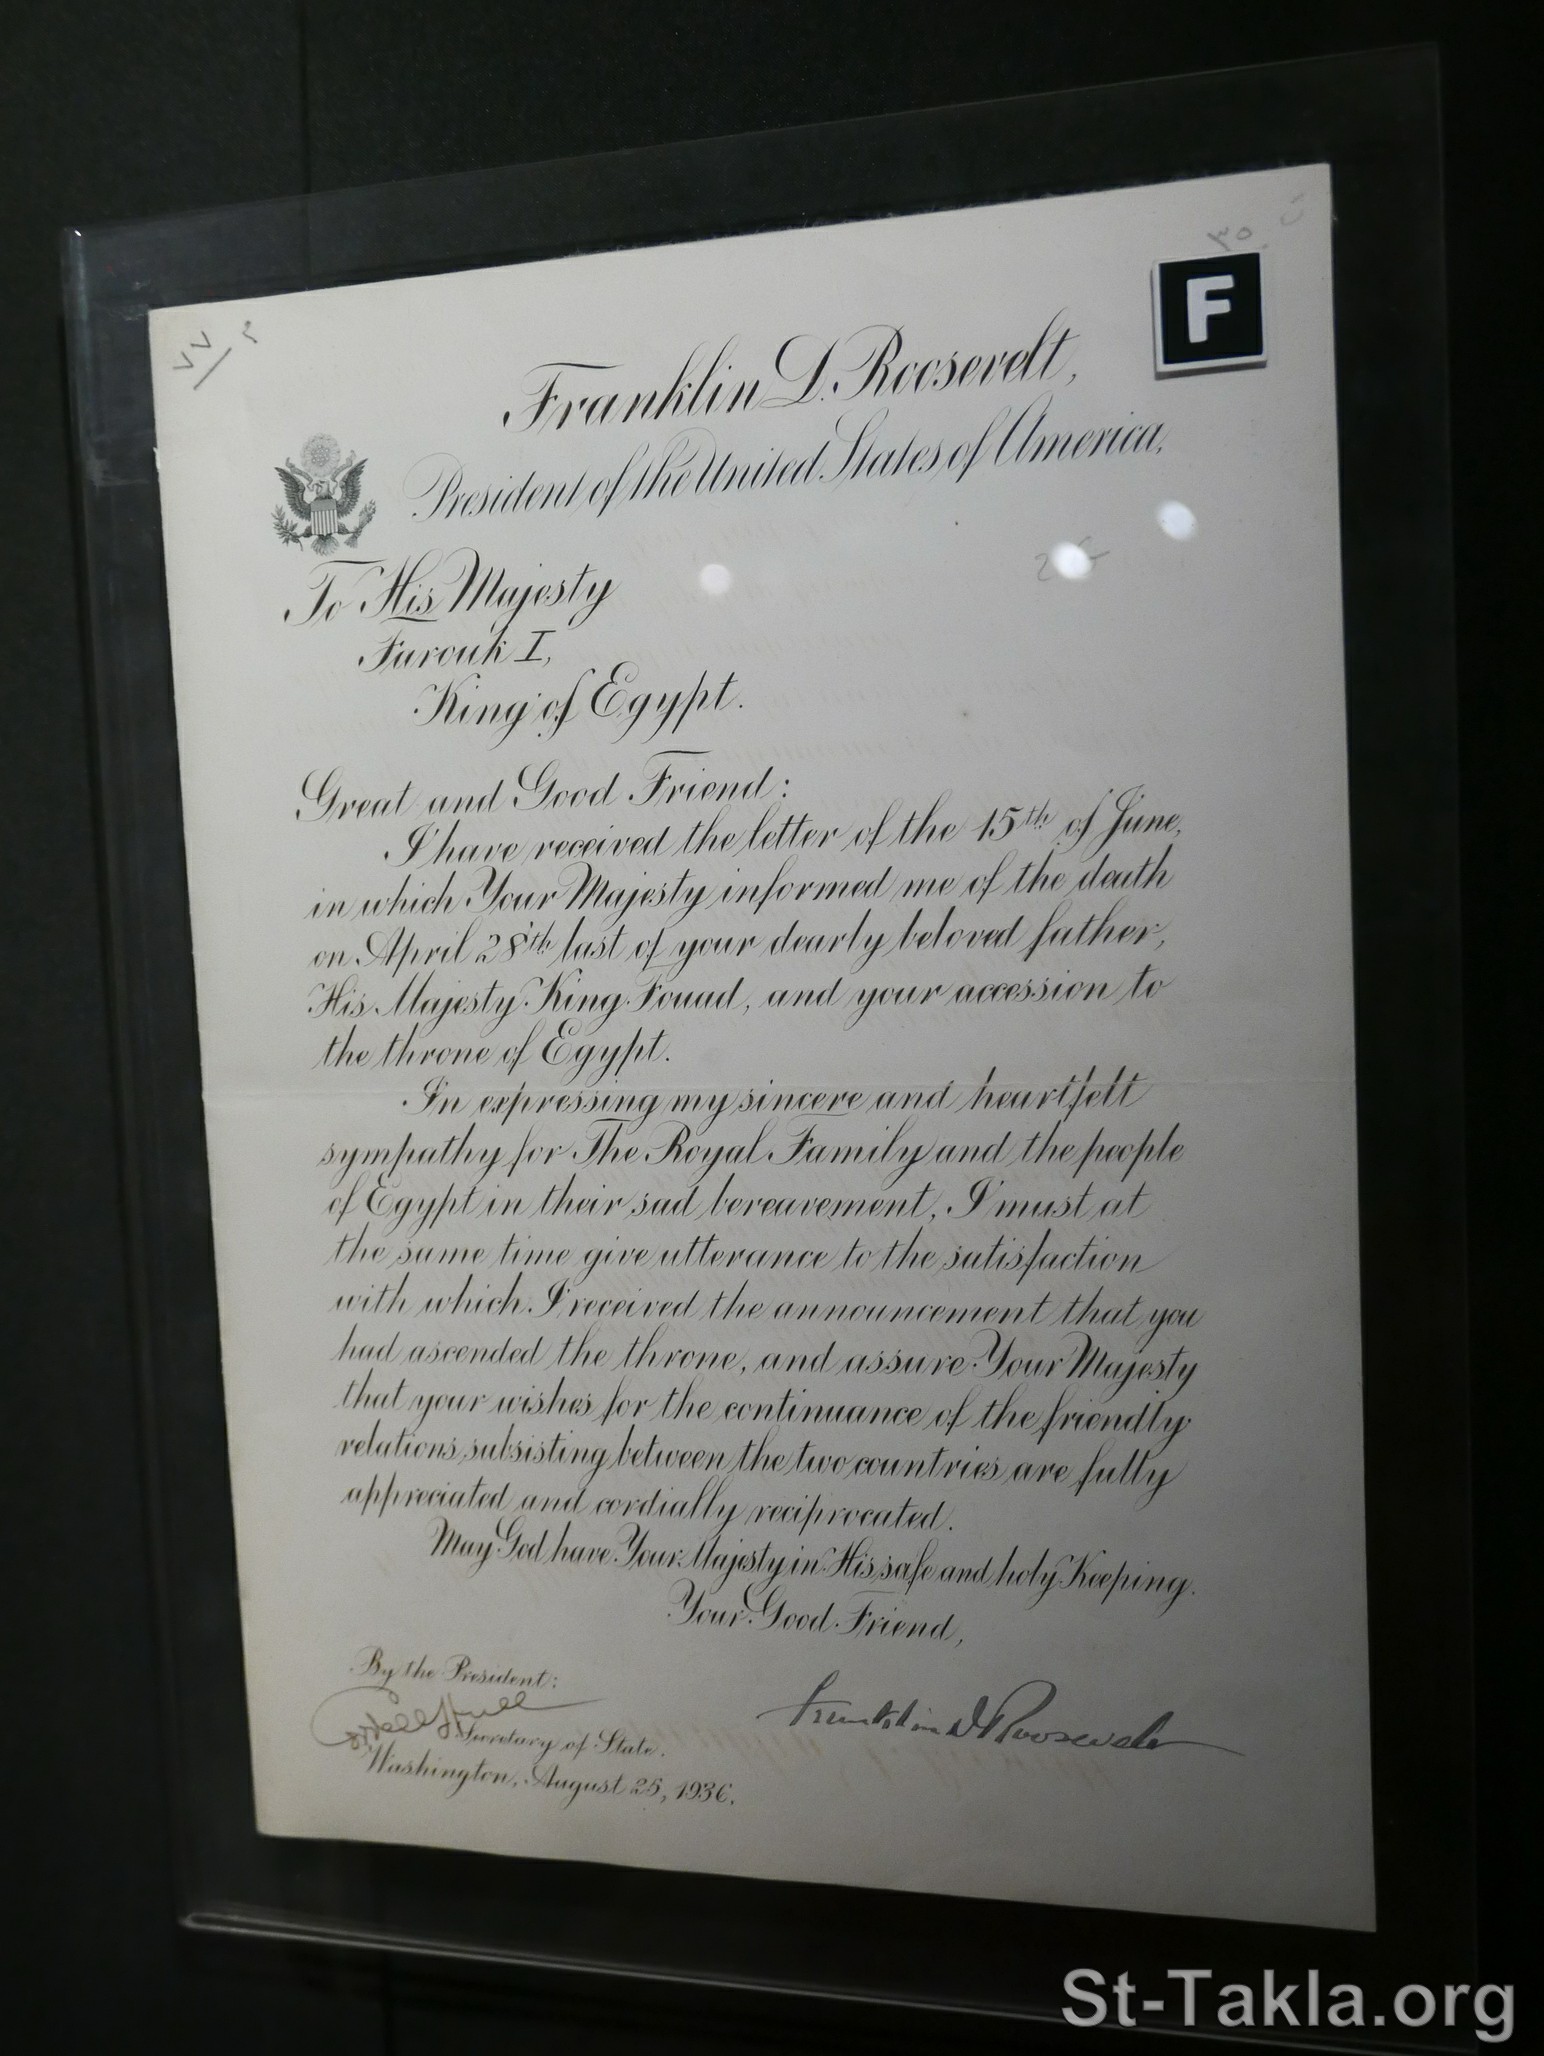 F
Franklin D. Roosevelt,
President of the United States of America,
To His Majesty
Farouk I,
King of Egypt.
Great and Good Friend:
I have received the letter of the 15th of June,
in which Your Majesty informed me of the death
on April 28th last of your dearly beloved father,
His Majesty King Fouad, and your accession to
the throne of Egypt.
In expressing my sincere and heartfelt
sympathy for The Royal Family and the people
of Egypt in their sad bereavement, I must at
the same time give utterance to the satisfaction
with which I received the announcement that you
had ascended the throne, and assure Your Majesty
that your wishes for the continuance of the friendly
relations subsisting between the two countries are fully
appreciated and cordially reciprocated.
May God have Your Majesty in His safe and holy Keeping.
Your Good Friend,
By the President:
Franklin D Roosevelt
Cordell Hull
Secretary of State.
Washington, August 25, 1936.
St-Takla.org